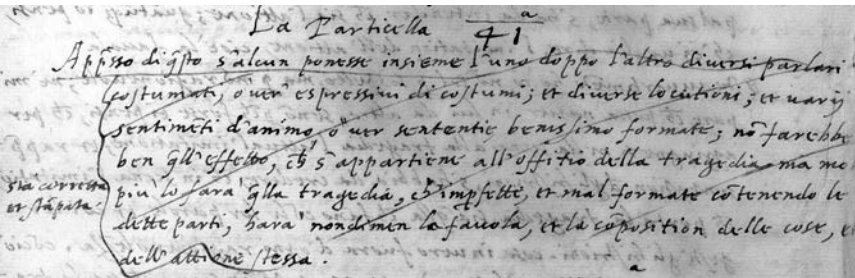 La Particella 41ª
App̃sso di q̃sto s'alcun ponesse insieme l'uno doppo l'altro diversi parlari
costumati, o ver' espressivi di costumi; et diverse locutioni; et varij
sentimẽti d'animo, o ver sententie benissimo formate; nõ farebbe
ben q̃ll'effetto, ch̃ s'appartiene all'offitio della tragedia. ma mo
sta corretta
et stãpata.
piu' lo fara' q̃lla tragedia, ch'impfette, et mal formate cõtenendo le
dette parti, hara' nondimen la favola, et la cõposition delle cose, e
dell'attione stessa.
a